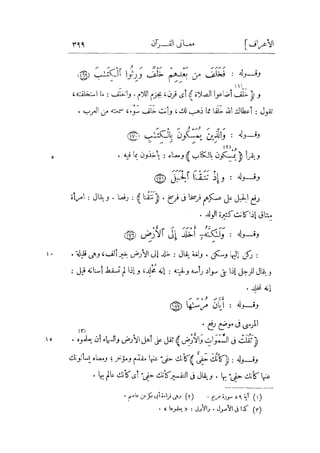 الأعراف] معانى القـرآن ٣٩٩
وقـوله : ﴿فَخَلَفَ من بَعْدِهِمْ خَلْفٌ وَرِثُوا ٱلْكِتَٰبَ (١٦٩)﴾
و ﴿خَلْف(١) أضاعوا الصلاة﴾ أى قرن، بجزم اللام. والخلَف : ما استخلفته،
تقول : أعطاك الله خلفا مما ذهب لك، وأنت خَلْف سَوْء، سمعته من العرب.
وقـوله : وَالَّذِينَ يُمَسِّكُونَ بِٱلْكِتَٰبِ (١٧٠)
ويقرأ ﴿يُمْسِكُون(٢) بالكتاب﴾ ومعناه : يأخذون بما فيه. ٥
وقوله : وَإِذْ نَتَقْنَا ٱلْجَبَلَ (١٧١)
رفع الجبل على عسكرهم فرسخا فى فرسخ. ﴿نَتَقْنا﴾ : رفعنا. ويقال : امرأة
منتاق إذا كانت كثيرة الولد.
وقوله : وَلَٰكِنَّهُۥٓ أَخْلَدَ إِلَى ٱلْأَرْضِ (١٧٦)
: ركن إليها وسكن. ولغة يقال : خلد إلى الأرض بغير ألف، وهى قليلة. ١٠
ويقال للرجل إذا بقى سواد رأسه ولحيته : إنه مُخْلِد، وإذا لم تسقط أسنانه قيل :
إنه لمخلد.
وقـوله : أَيَّانَ مُرْسَىٰهَا (١٨٧)
المرسى فى موضع رفع.
﴿ثَقُلَتْ فى السَّمَوَاتِ وَالْأَرْضِ﴾ ثقل على أهل الأرض والسماء أن يعلموه(٣). ١٥
وقوله : ﴿كأنك حَفِىّ﴾ كأنك حفىّ عنها مقدّم ومؤخر ؛ ومعناه يسألونك
عنها كأنك حفىّ بها. ويقال فى التفسير كأنك حفىّ أى كأنك عالم بها.
(١) آية ٥٩ سورة مريم. (٢) وهى قراءة أبى بكر عن عاصم.
(٣) كذا فى الأصول. والأولى :